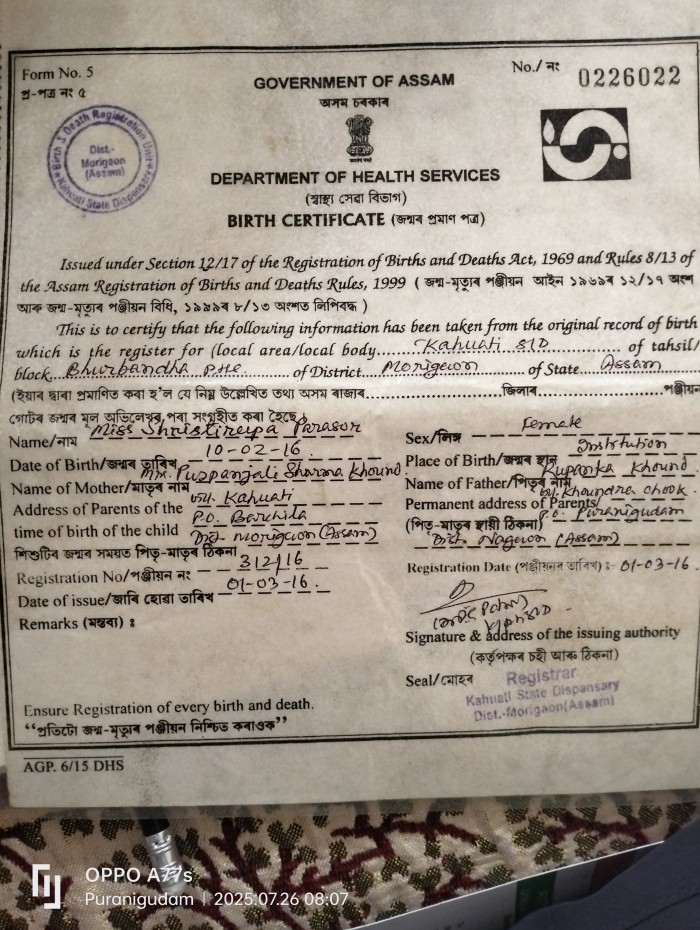 Form No. 5
প্ৰ-পত্ৰ নং ৫
No./ নং 0226022
Birth & Death Registration Unit
Dist.-
Morigaon
(Assam)
Kahuati State Dispensary
GOVERNMENT OF ASSAM
অসম চৰকাৰ
DEPARTMENT OF HEALTH SERVICES
(স্বাস্থ্য সেৱা বিভাগ)
BIRTH CERTIFICATE (জন্মৰ প্ৰমাণ পত্ৰ)
Issued under Section 12/17 of the Registration of Births and Deaths Act, 1969 and Rules 8/13 of
the Assam Registration of Births and Deaths Rules, 1999 ( জন্ম-মৃত্যুৰ পঞ্জীয়ন আইন ১৯৬৯ৰ ১২/১৭ অংশ
আৰু জন্ম-মৃত্যুৰ পঞ্জীয়ন বিধি, ১৯৯৯ৰ ৮/১৩ অংশত লিপিবদ্ধ )
This is to certify that the following information has been taken from the original record of birth
which is the register for (local area/local body.....Kahuati S/D.....of tahsil/
block...Bhurbandha PHE...of District...Morigaon...of State...Assam
(ইয়াৰ দ্বাৰা প্ৰমাণিত কৰা হ'ল যে নিম্ন উল্লেখিত তথ্য অসম ৰাজ্যৰ..........জিলাৰ..........পঞ্জীয়ন
গোটৰ জন্মৰ মূল অভিলেখৰ পৰা সংগৃহীত কৰা হৈছে)
Name/নাম Miss Shristirupa Parasor
Sex/লিঙ্গ Female
Date of Birth/জন্মৰ তাৰিখ 10-02-16.
Place of Birth/জন্মৰ স্থান Institution
Name of Mother/মাতৃৰ নাম Mrs. Puspanjali Sharma Khound.
Name of Father/পিতৃৰ নাম Rupanka Khound.
Address of Parents of the vill. Kahuati
time of birth of the child P.O. Barchila
Dist. Morigaon (Assam)
শিশুটিৰ জন্মৰ সময়ত পিতৃ-মাতৃৰ ঠিকনা
Permanent address of Parents/ Khoundra chook.
(পিতৃ-মাতৃৰ স্থায়ী ঠিকনা) P.O. Puranigudam
Dist. Nagaon (Assam)
Registration No/পঞ্জীয়ন নং 312/16
Registration Date (পঞ্জীয়নৰ তাৰিখ) :- 01-03-16.
Date of issue/জাৰি হোৱা তাৰিখ 01-03-16.
Remarks (মন্তব্য) :
Signature & address of the issuing authority
(কৰ্তৃপক্ষৰ চহী আৰু ঠিকনা)
Seal/মোহৰ Registrar
Kahuati State Dispensary
Dist.-Morigaon(Assam)
Ensure Registration of every birth and death.
“প্ৰতিটো জন্ম-মৃত্যুৰ পঞ্জীয়ন নিশ্চিত কৰাওক”
AGP. 6/15 DHS
OPPO A77s
Puranigudam | 2025.07.26 08:07